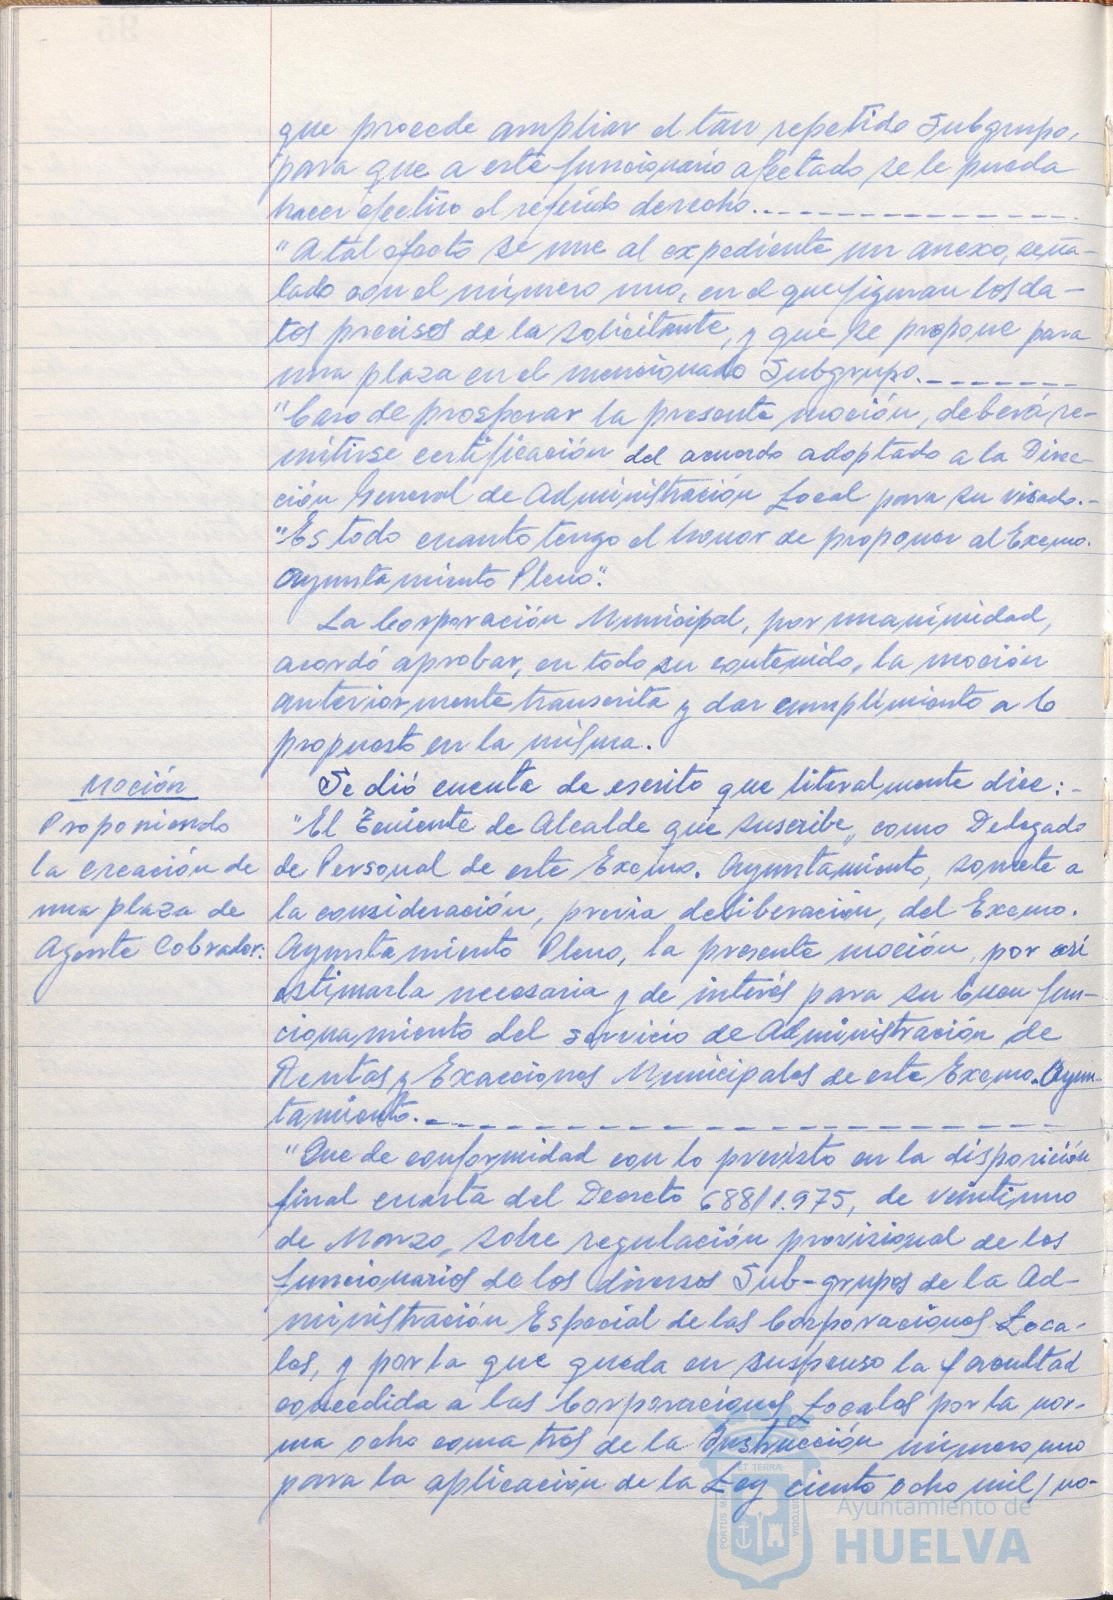 que procede ampliar el tan repetido Subgrupo,
para que a este funcionario afectado se le pueda
hacer efectivo el referido derecho.
"A tal efecto se une al expediente un anexo, seña-
lado con el número uno, en el que figuran los da-
tos precisos de la solicitante, y que se propone para
una plaza en el mencionado Subgrupo.
"Caso de prosperar la presente moción, deberá re-
mitirse certificación del acuerdo adoptado a la Direc-
ción General de Administración Local para su visado.-
"Es todo cuanto tengo el honor de proponer al Excmo.
Ayuntamiento Pleno".
La Corporación Municipal, por unanimidad,
acordó aprobar, en todo su contenido, la moción
anteriormente transcrita y dar cumplimiento a lo
propuesto en la misma.
Moción
Proponiendo
la creación de
una plaza de
Agente Cobrador.
Se dió cuenta de escrito que literalmente dice:-
"El Teniente de Alcalde que suscribe, como Delegado
de Personal de este Excmo. Ayuntamiento, somete a
la consideración, previa deliberación, del Excmo.
Ayuntamiento Pleno, la presente moción, por así
estimarla necesaria y de interés para su buen fun-
cionamiento del servicio de Administración de
Rentas y Exacciones Municipales de este Excmo. Ayun-
tamiento.
"Que de conformidad con lo previsto en la disposición
final cuarta del Decreto 688/1.975, de veintiuno
de Marzo, sobre regulación provisional de los
funcionarios de los diversos Sub-grupos de la Ad-
ministración Especial de las Corporaciones Loca-
les, y por la que queda en suspenso la facultad
concedida a las Corporaciones Locales por la nor-
ma ocho coma tres de la Instrucción número uno
para la aplicación de la Ley ciento ocho mil/no-
PORTUS
ET TERRAE
CUSTODIA
Ayuntamiento de
HUELVA